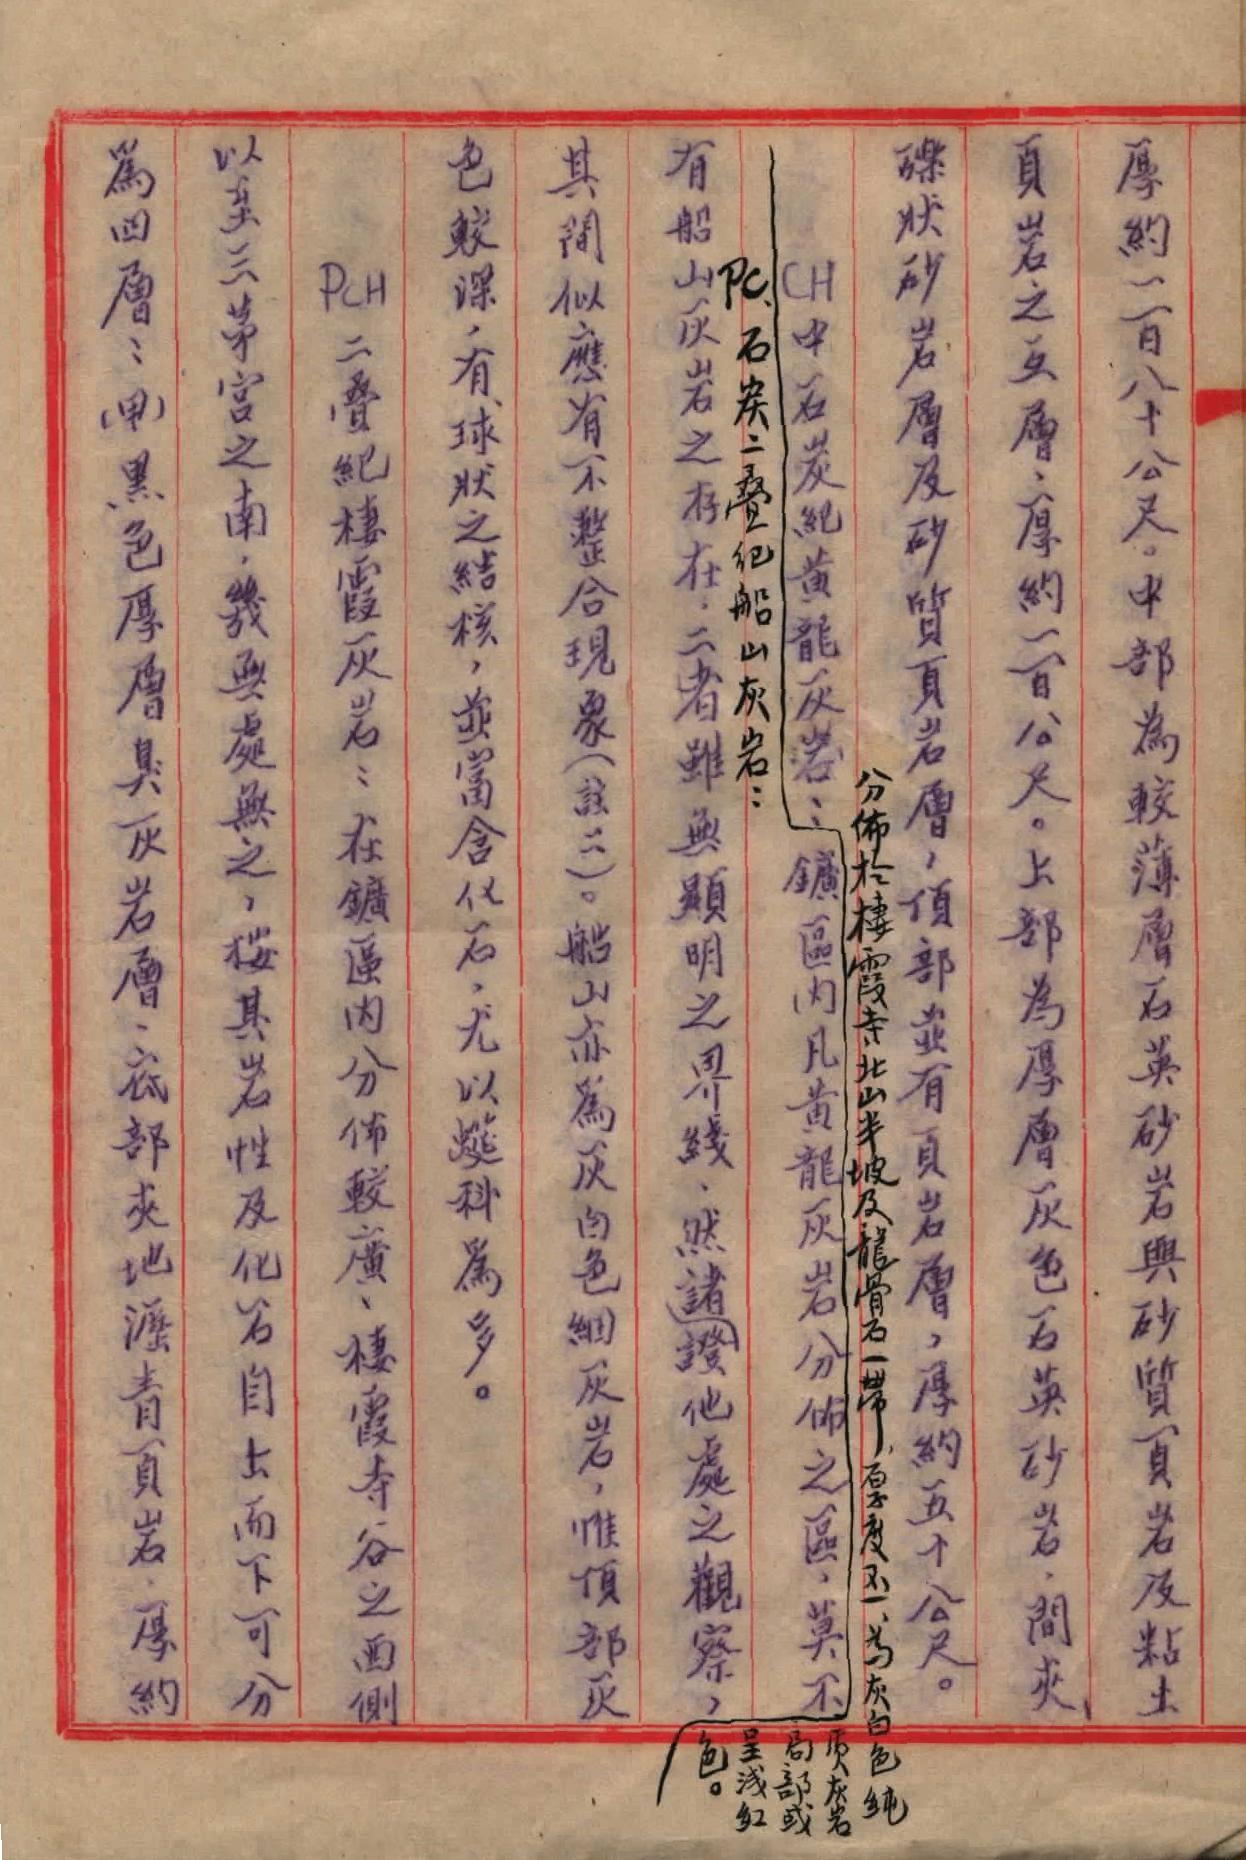 厚約一百八十公尺。中部為較薄層石英砂岩與砂質頁岩及粘土
頁岩之互層、厚約一百公尺。上部為厚層灰色石英砂岩、間夾
礫狀砂岩層及砂質頁岩層，頂部並有頁岩層，厚約五十公尺。
分佈於棲霞寺北山半坡及龍骨石一帶，厚度不一、為灰白色純
質灰岩
局部或
呈淺紅
色。
CH中石炭紀黃龍灰岩：鑛區內凡黃龍灰岩分佈之區，莫不
PC、石炭二疊纪船山灰岩：
有船山灰岩之存在，二者雖無顯明之界綫、然諸證他處之觀察，
其間似應有不整合現象(註二)。船山亦為灰白色細灰岩，惟頂部灰
色較深，有球狀之結核，並富含化石，尤以蜓科為多。
PCH 二疊紀棲霞灰岩：在鑛區內分佈較廣、棲霞寺谷之西側
以至三茅宮之南，幾無處無之，按其岩性及化石自上而下可分
為四層：(甲)黑色厚層臭灰岩層：底部夾地瀝青頁岩，厚約